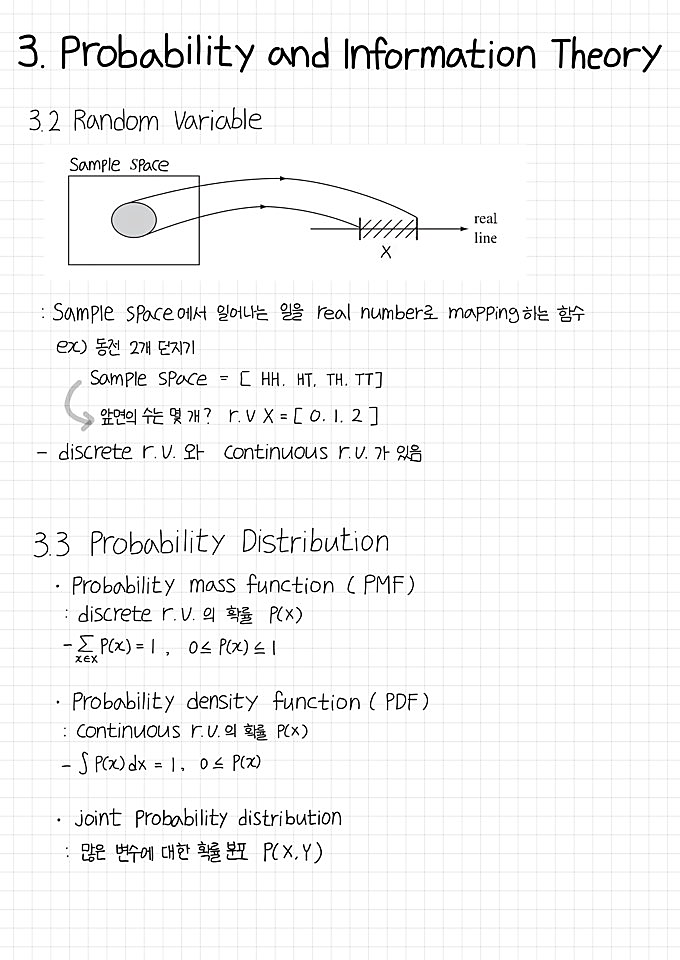 3. Probability and Information Theory
3.2 Random Variable
Sample space
real
line
X
: Sample space에서 일어나는 일을 real number로 mapping하는 함수
ex) 동전 2개 던지기
Sample space = [ HH. HT. TH. TT]
앞면의 수는 몇 개? r.v X = [ 0. 1. 2 ]
- discrete r.v. 와 continuous r.v.가 있음
3.3 Probability Distribution
· Probability mass function ( PMF)
: discrete r.v.의 확률 P(x)
- ∑x∈X P(x) = 1 , 0 ≤ P(x) ≤ 1
· Probability density function ( PDF)
: continuous r.v.의 확률 P(x)
- ∫ P(x) dx = 1, 0 ≤ P(x)
· joint Probability distribution
: 많은 변수에 대한 확률 분포 P(X,Y)